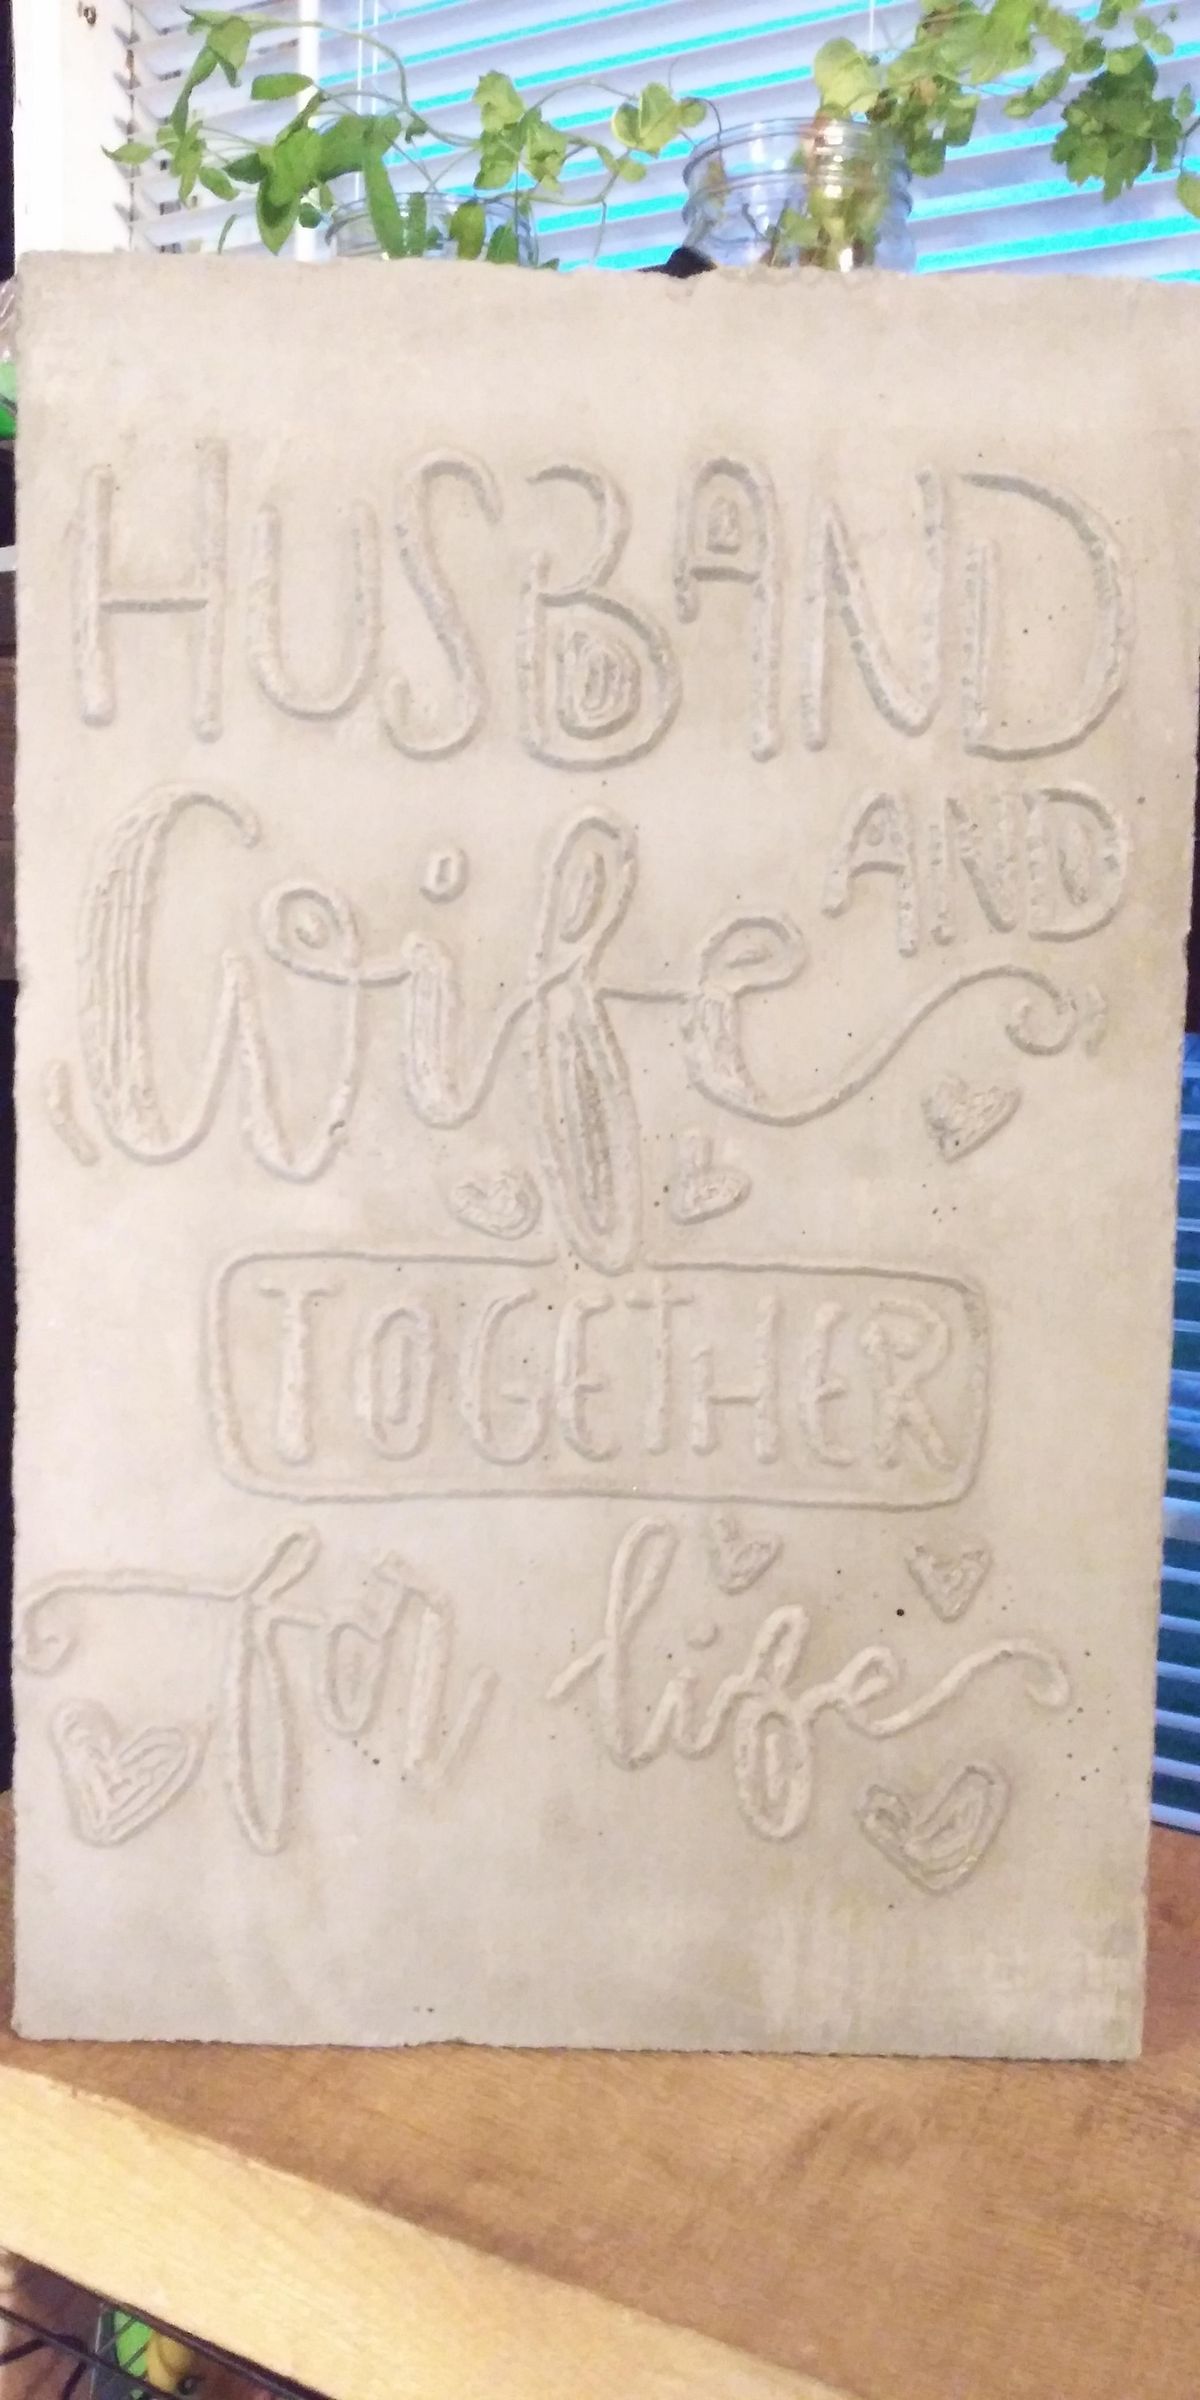 HUSBAND
AND
Wife
TOGETHER
for life